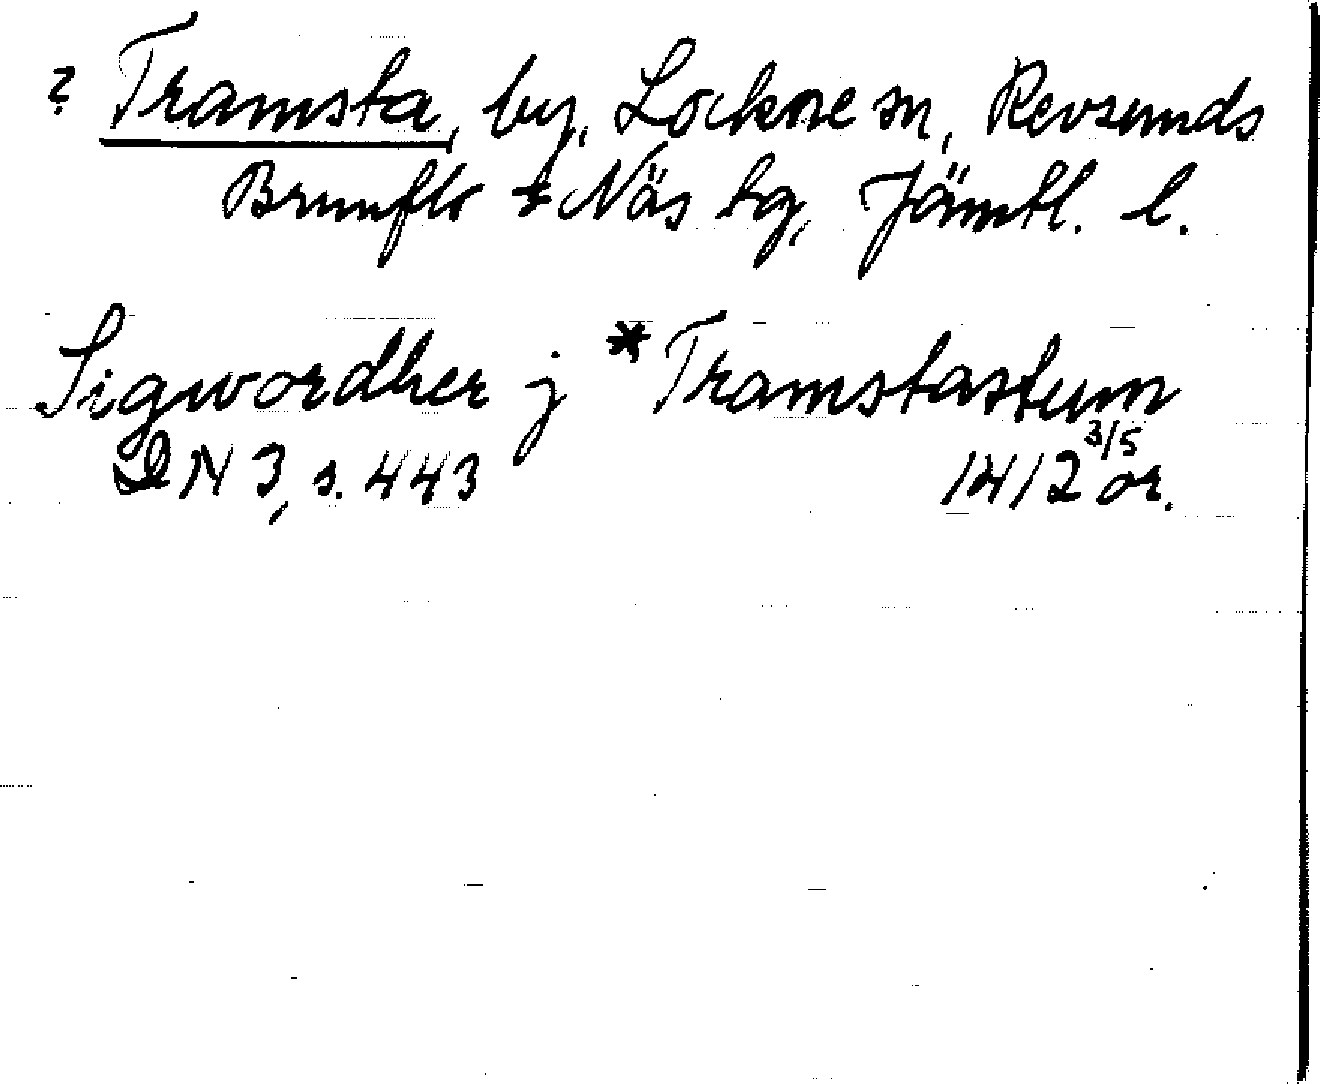 ? Tramsta, by, Lockne sn, Revsunds
Brunflo & Näs tg, Jämtl. l.
Sigwordher j *Tramstastum
DN 3, s. 443 1412 3/5 or.